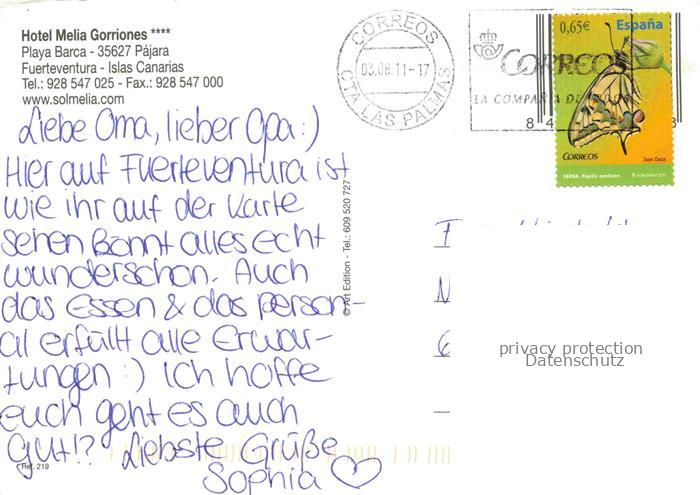 Hotel Melia Gorriones ****
Playa Barca - 35627 Pájara
Fuerteventura - Islas Canarias
Tel.: 928 547 025 - Fax.: 928 547 000
www.solmelia.com
Liebe Oma, lieber Opa :)
Hier auf Fuerteventura ist
wie ihr auf der Karte
sehen könnt alles echt
wunderschön. Auch
das Essen & das Person-
al erfüllt alle Erwar-
tungen :) Ich hoffe
euch geht es auch
gut!? Liebste Grüße
Sophia ♡
Ref. 219
© Art Edition - Tel.: 609 520 727
CORREOS
03.08.11-17
CTA LAS PALMAS
CORREOS
LA COMPAÑIA DE
8 4
8
0,65€
España
CORREOS
Juan Daza
FAUNA: Papilio machaon
privacy protection
Datenschutz